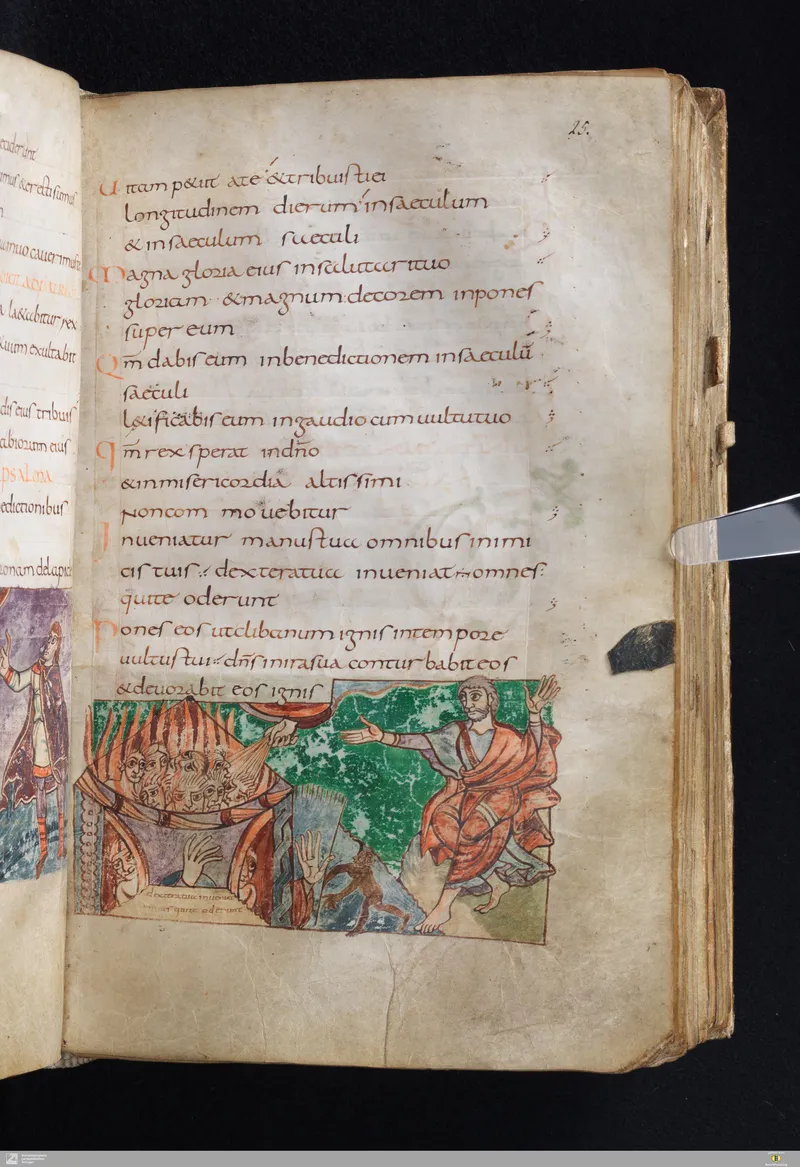 eaderunt
mus & erecti sumus
inuo cauerimus
la&abitur rex
uum exultabit
dis eius tribuis
abiorum eius
psalma
edictionibus
onam delapide
25.
Uitam p&iit ate &tribuisti ei
longitudinem dierum insaeculum
& insaeculum saeculi
Magna gloria eius insalutarituo
gloriam &magnum decorem inpones
super eum
Qm̄ dabis eum inbenedictionem insaeculū
saeculi
l&ificabis eum ingaudio cum uultutuo
Qm̄ rex sperat indn̄o
&inmisericordia altissimi
noncom mouebitur
Inueniatur manustua omnibus inimi
cis tuis dexteratua inueniat omnes
qui te oderunt
Pones eos utclibanum ignis intempore
uultustui dn̄s inirasua conturbabit eos
&deuorabit eos ignis
dextera tua inueniat
qui te oderunt